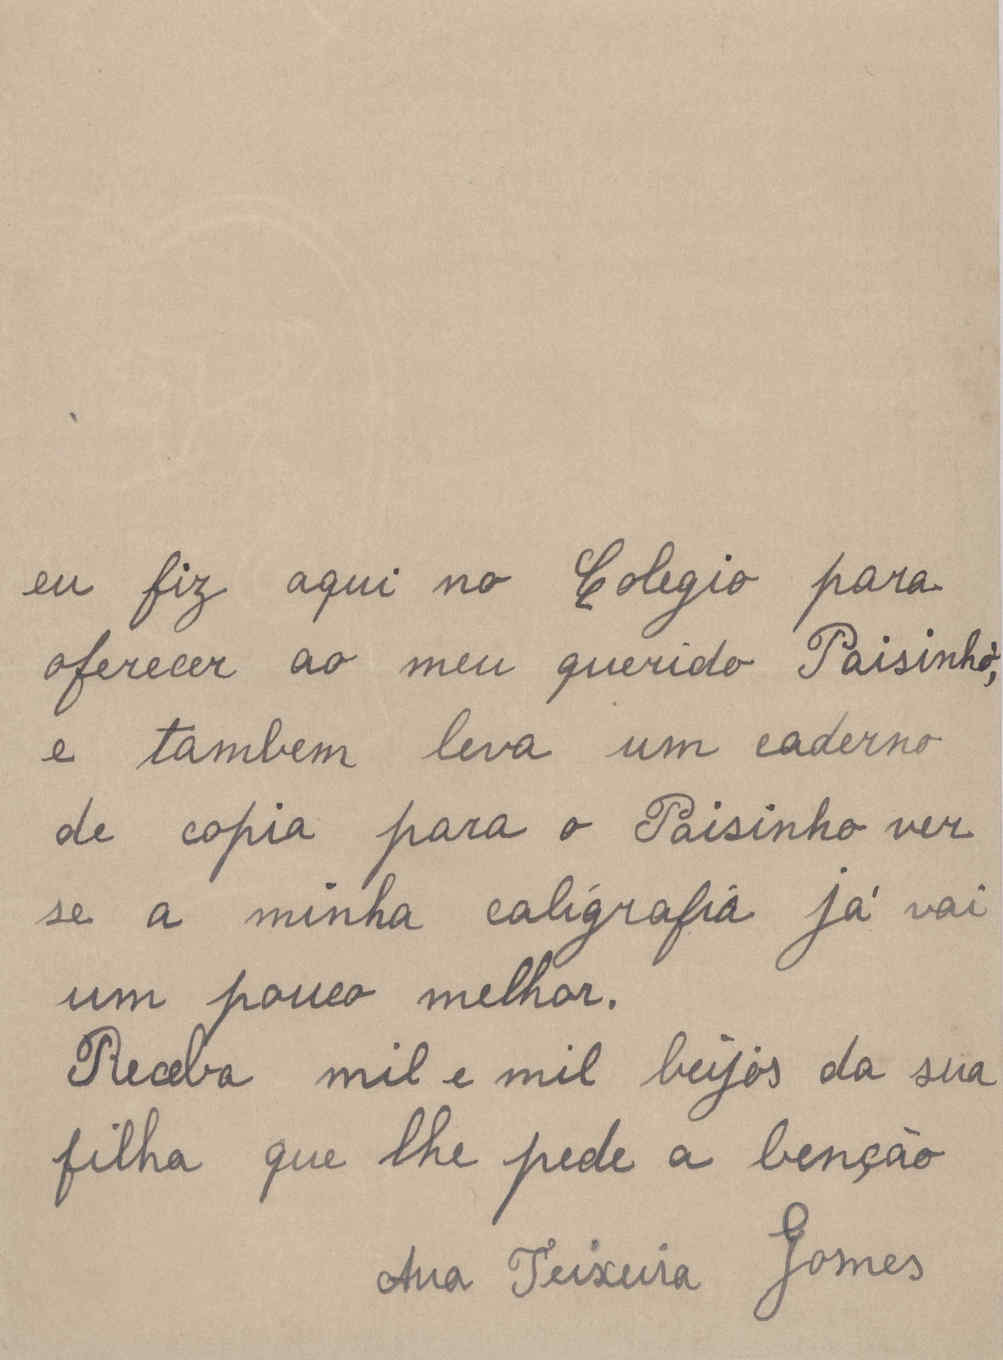 eu fiz aqui no Colegio para
oferecer ao meu querido Paisinho,
e tambem leva um caderno
de copia para o Paisinho ver
se a minha caligrafia já vai
um pouco melhor.
Receba mil e mil beijos da sua
filha que lhe pede a benção
Ana Teixeira Gomes